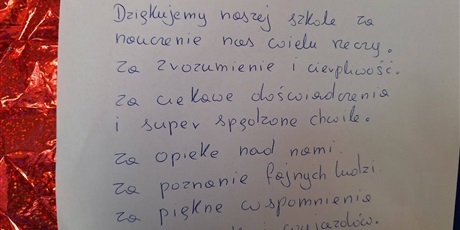 Dziękujemy naszej szkole za
nauczenie nas wielu rzeczy.
Za zrozumienie i cierpliwość.
Za ciekawe doświadczenia
i super spędzone chwile.
Za opiekę nad nami.
Za poznanie fajnych ludzi.
Za piękne wspomnienia
wyjazdów.